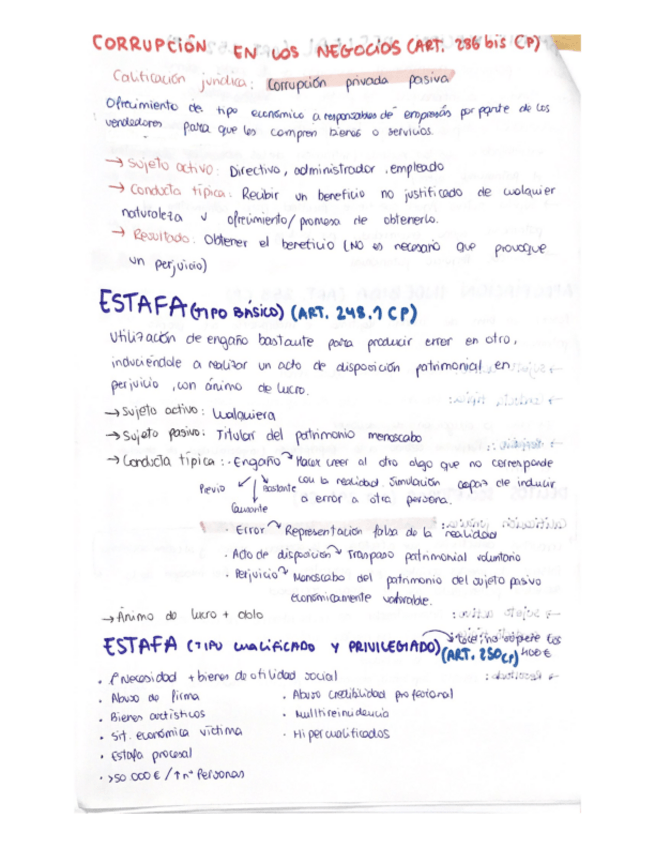 CORRUPCIÓN EN LOS NEGOCIOS (ART. 286 bis CP)
Calificación jurídica: Corrupción privada pasiva
Ofrecimiento de tipo económico a responsables de empresas por parte de los
vendedores para que les compren bienes o servicios.
→ Sujeto activo: Directivo, administrador, empleado
→ Conducta típica: Recibir un beneficio no justificado de cualquier
naturaleza u ofrecimiento/promesa de obtenerlo.
→ Resultado: Obtener el beneficio (NO es necesario que provoque
un perjuicio)
ESTAFA (TIPO BÁSICO) (ART. 248.1 CP)
Utilización de engaño bastante para producir error en otro,
induciéndole a realizar un acto de disposición patrimonial en
perjuicio, con ánimo de lucro.
→ Sujeto activo: Cualquiera
→ Sujeto pasivo: Titular del patrimonio menoscabo
→ Conducta típica: · Engaño Hacer creer al otro algo que no corresponde
Previo Bastante con la realidad. Simulación capaz de inducir
Causante a error a otra persona.
· Error Representación falsa de la realidad
· Acto de disposición Traspaso patrimonial voluntario
· Perjuicio Menoscabo del patrimonio del sujeto pasivo
económicamente valorable.
→ Ánimo de lucro + dolo
ESTAFA (TIPO CUALIFICADO Y PRIVILEGIADO) los
(ART. 250 CP) 400 €
· 1ª Necesidad + bienes de utilidad social
· Abuso de firma · Abuso credibilidad profesional
· Bienes artísticos · Multirreincidencia
· Sit. económica víctima · Hipercualificados
· Estafa procesal
· >50 000 € / ↑ nº Personas